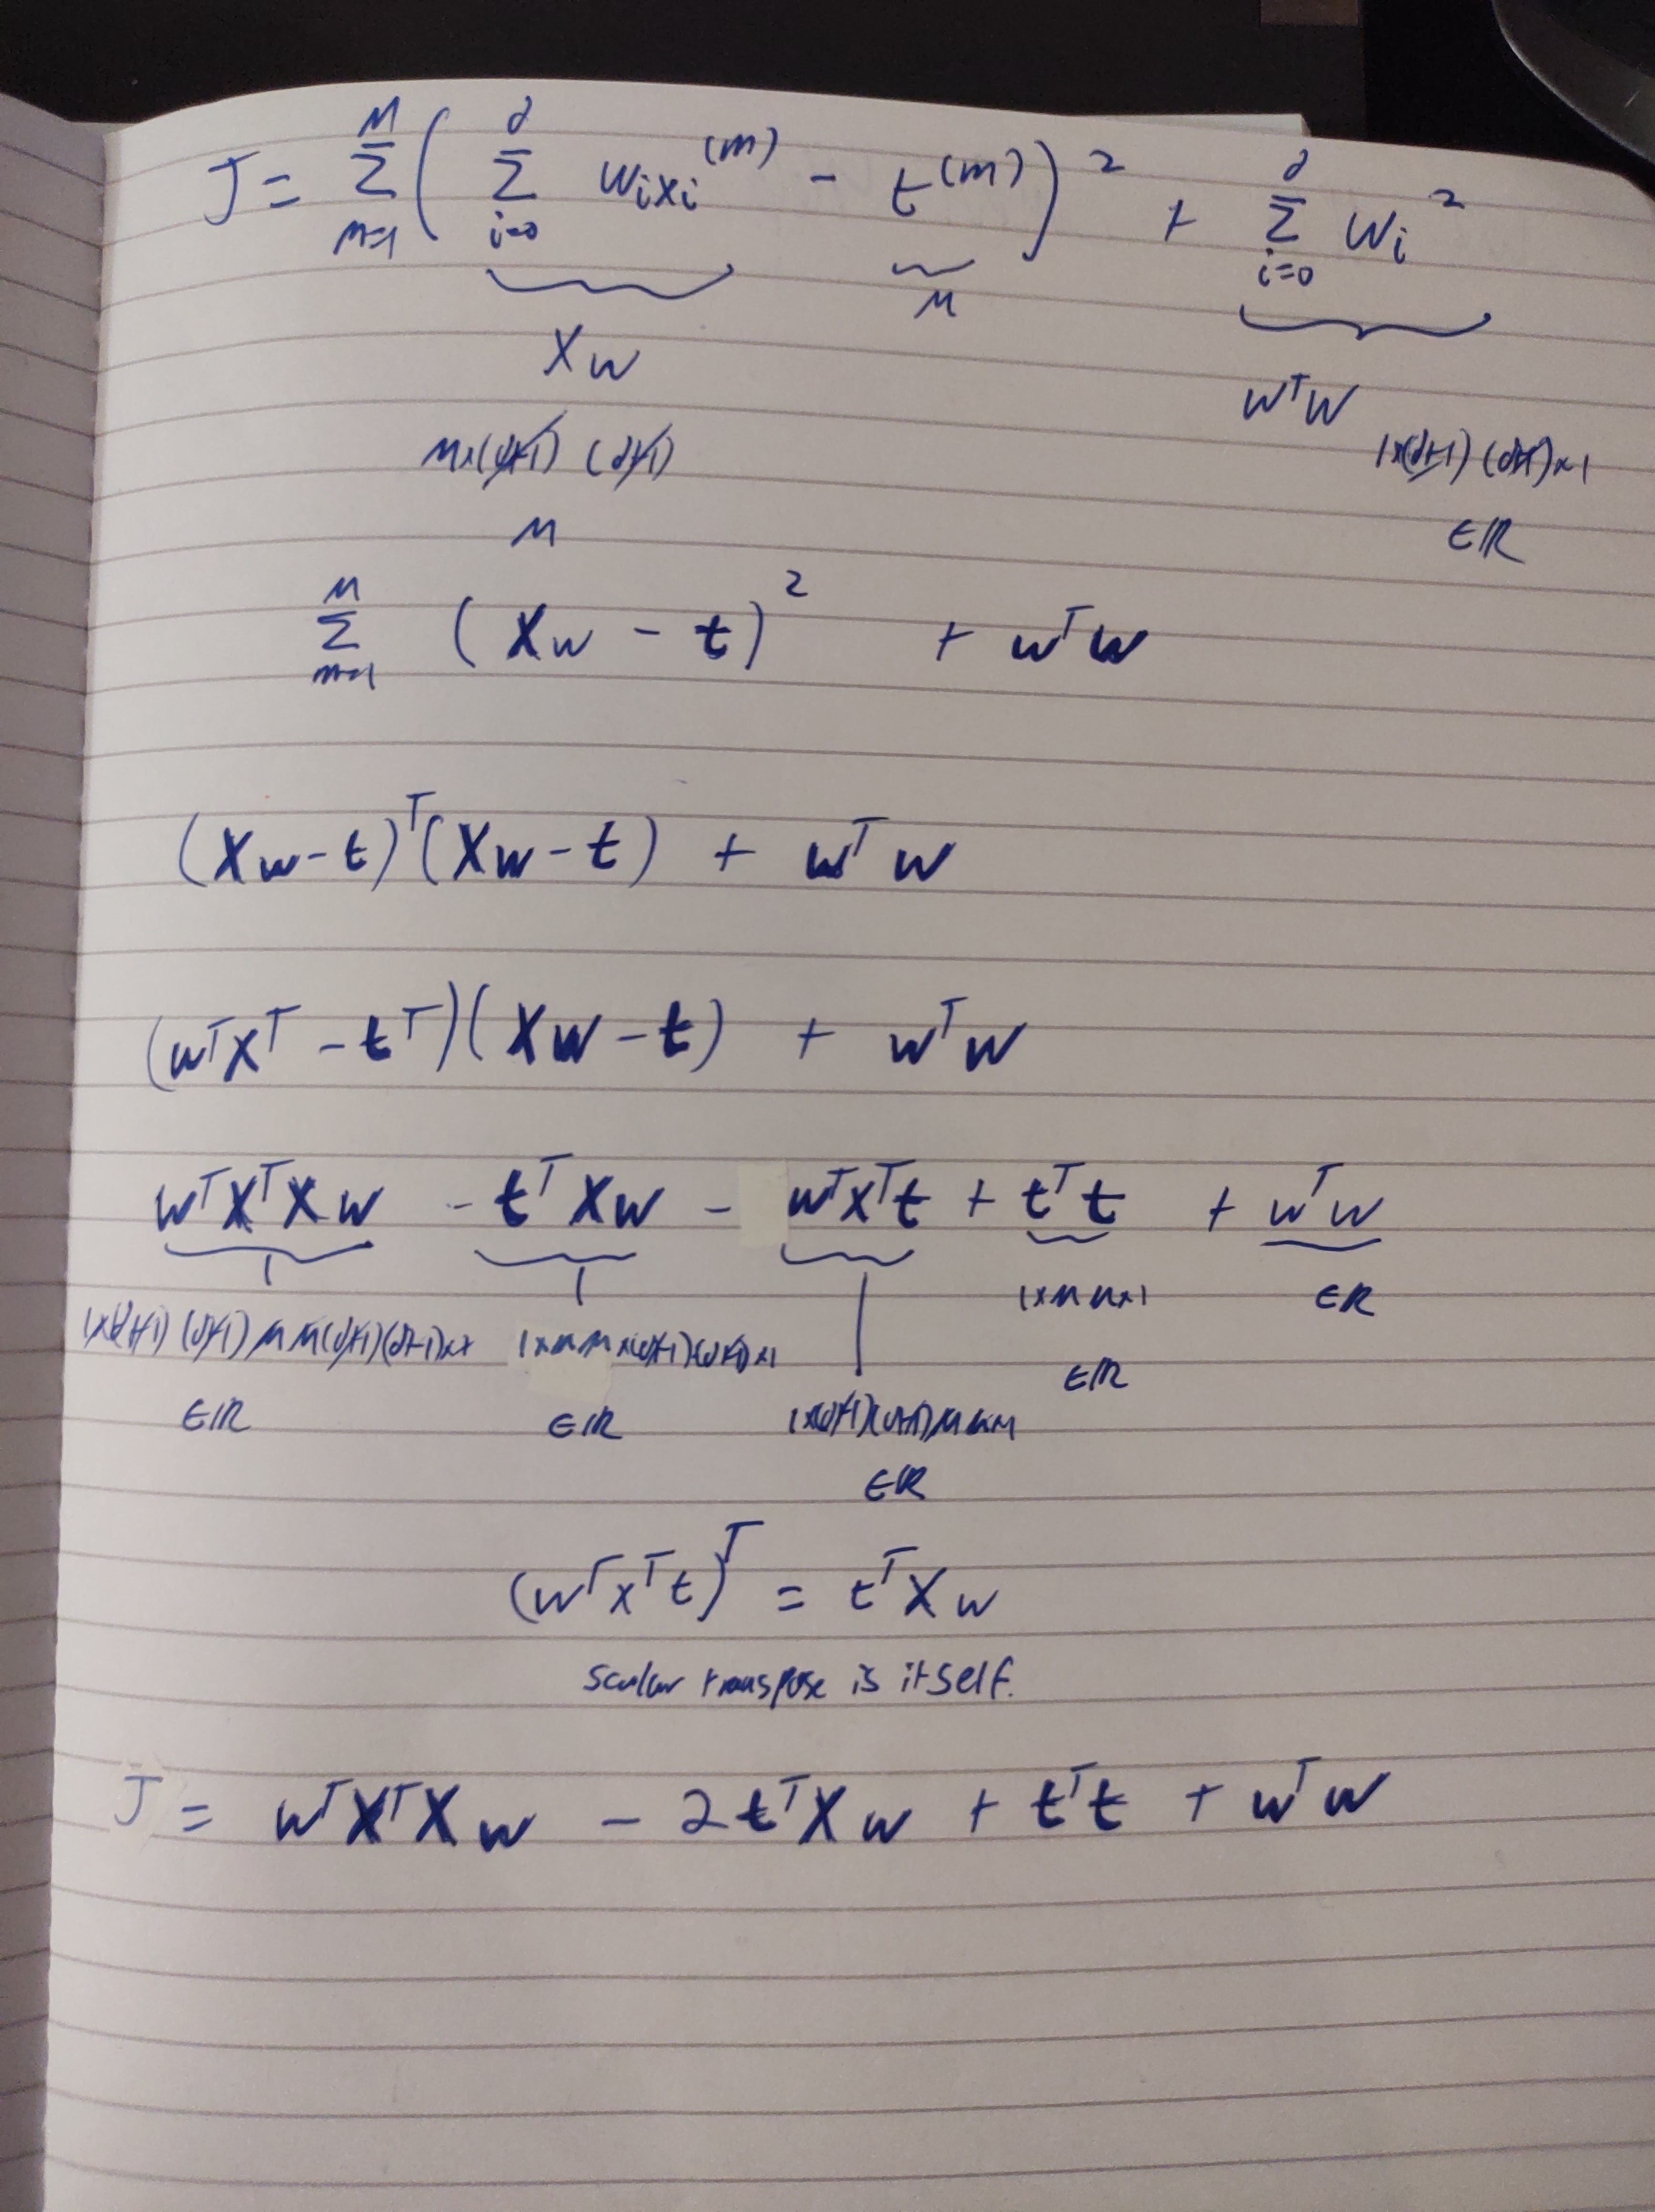 J = Σ_{m=1}^{M} ( Σ_{i=0}^{d} w_i x_i^{(m)} − t^{(m)} )² + Σ_{i=0}^{d} w_i²
Xw M wᵀw
M×(d+1) (d+1) 1×(d+1) (d+1)×1
M ∈ℝ
Σ_{m=1}^{M} (Xw − t)² + wᵀw
(Xw − t)ᵀ(Xw − t) + wᵀw
(wᵀXᵀ − tᵀ)(Xw − t) + wᵀw
wᵀXᵀXw − tᵀXw − wᵀXᵀt + tᵀt + wᵀw
1×M M×1 ∈ℝ
1×(d+1) (d+1) M M(d+1)(d+1)×1 1×M M×(d+1)(d+1)×1 ∈ℝ
∈ℝ ∈ℝ 1×(d+1)(d+1)M
∈ℝ
(wᵀXᵀt)ᵀ = tᵀXw
scalar transpose is itself.
J = wᵀXᵀXw − 2tᵀXw + tᵀt + wᵀw